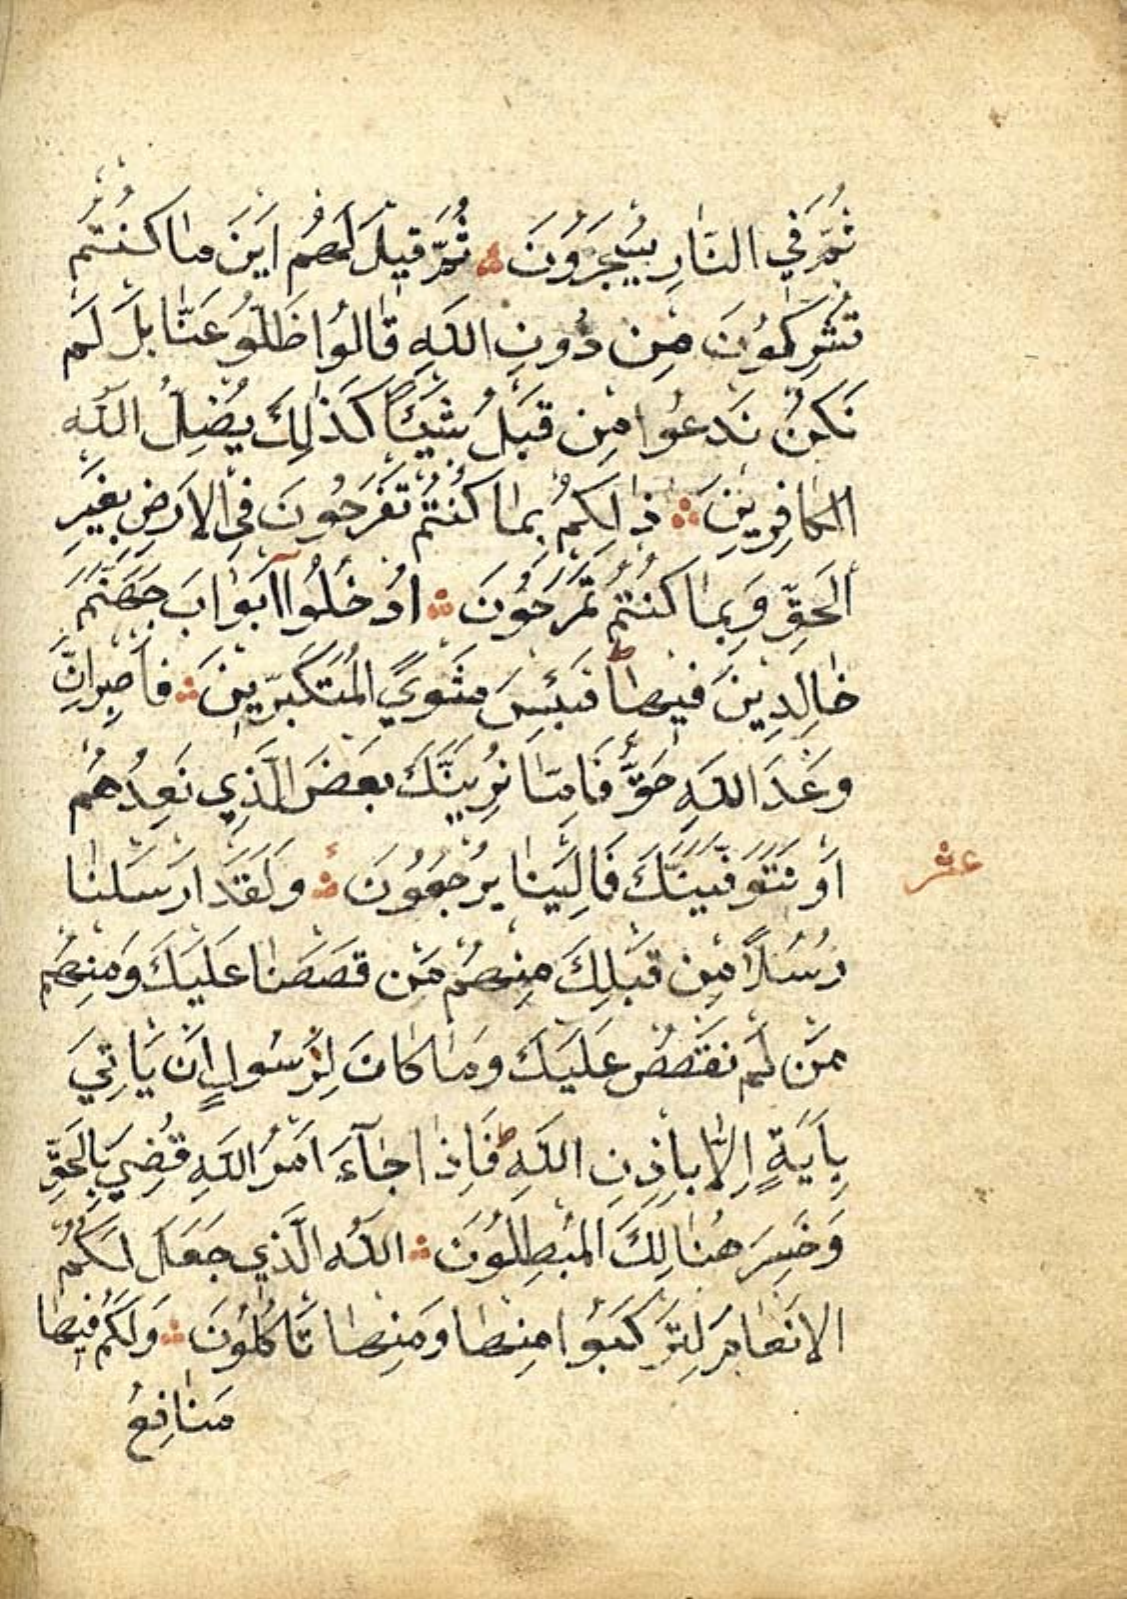 ثُمَّ فِي النَّارِ يُسْجَرُونَ ۞ ثُمَّ قِيلَ لَهُمْ اَيْنَ مَا كُنْتُمْ
تُشْرِكُونَ مِنْ دُونِ اللّٰهِ قَالُوا ضَلُّوا عَنَّا بَلْ لَمْ
نَكُنْ نَدْعُوا مِنْ قَبْلُ شَيْئًا كَذٰلِكَ يُضِلُّ اللّٰهُ
الْكَافِرِينَ ۞ ذٰلِكُمْ بِمَا كُنْتُمْ تَفْرَحُونَ فِي الْاَرْضِ بِغَيْرِ
الْحَقِّ وَبِمَا كُنْتُمْ تَمْرَحُونَ ۞ اُدْخُلُوا اَبْوَابَ جَهَنَّمَ
خَالِدِينَ فِيهَا ط فَبِئْسَ مَثْوَى الْمُتَكَبِّرِينَ ۞ فَاصْبِرْ اِنَّ
وَعْدَ اللّٰهِ حَقٌّ فَاِمَّا نُرِيَنَّكَ بَعْضَ الَّذِي نَعِدُهُمْ
اَوْ نَتَوَفَّيَنَّكَ فَاِلَيْنَا يُرْجَعُونَ ۞ وَلَقَدْ اَرْسَلْنَا
عشر
رُسُلًا مِنْ قَبْلِكَ مِنْهُمْ مَنْ قَصَصْنَا عَلَيْكَ وَمِنْهُمْ
مَنْ لَمْ نَقْصُصْ عَلَيْكَ وَمَا كَانَ لِرَسُولٍ اَنْ يَاْتِيَ
بِاٰيَةٍ اِلَّا بِاِذْنِ اللّٰهِ ط فَاِذَا جَآءَ اَمْرُ اللّٰهِ قُضِيَ بِالْحَقِّ
وَخَسِرَ هُنَالِكَ الْمُبْطِلُونَ ۞ اَللّٰهُ الَّذِي جَعَلَ لَكُمُ
الْاَنْعَامَ لِتَرْكَبُوا مِنْهَا وَمِنْهَا تَاْكُلُونَ ۞ وَلَكُمْ فِيهَا
مَنَافِعُ